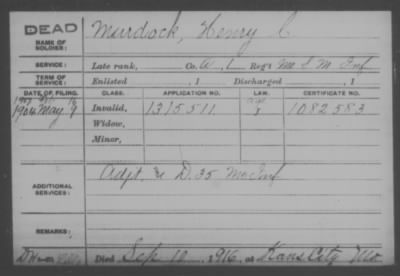 DEAD
NAME OF SOLDIER:
Murdock, Henry C
SERVICE:
Late rank, Co. Reg't M S M Inf
TERM OF SERVICE:
Enlisted , 1 Discharged , 1
DATE OF FILING. CLASS. APPLICATION NO. LAW. CERTIFICATE NO.
1904 May 9 Invalid, 1315511 1082583
Widow,
Minor,
ADDITIONAL SERVICES:
Adjt. D. 35 Mo Inf
REMARKS:
Died Sep 12, 1916, at Kans City Mo